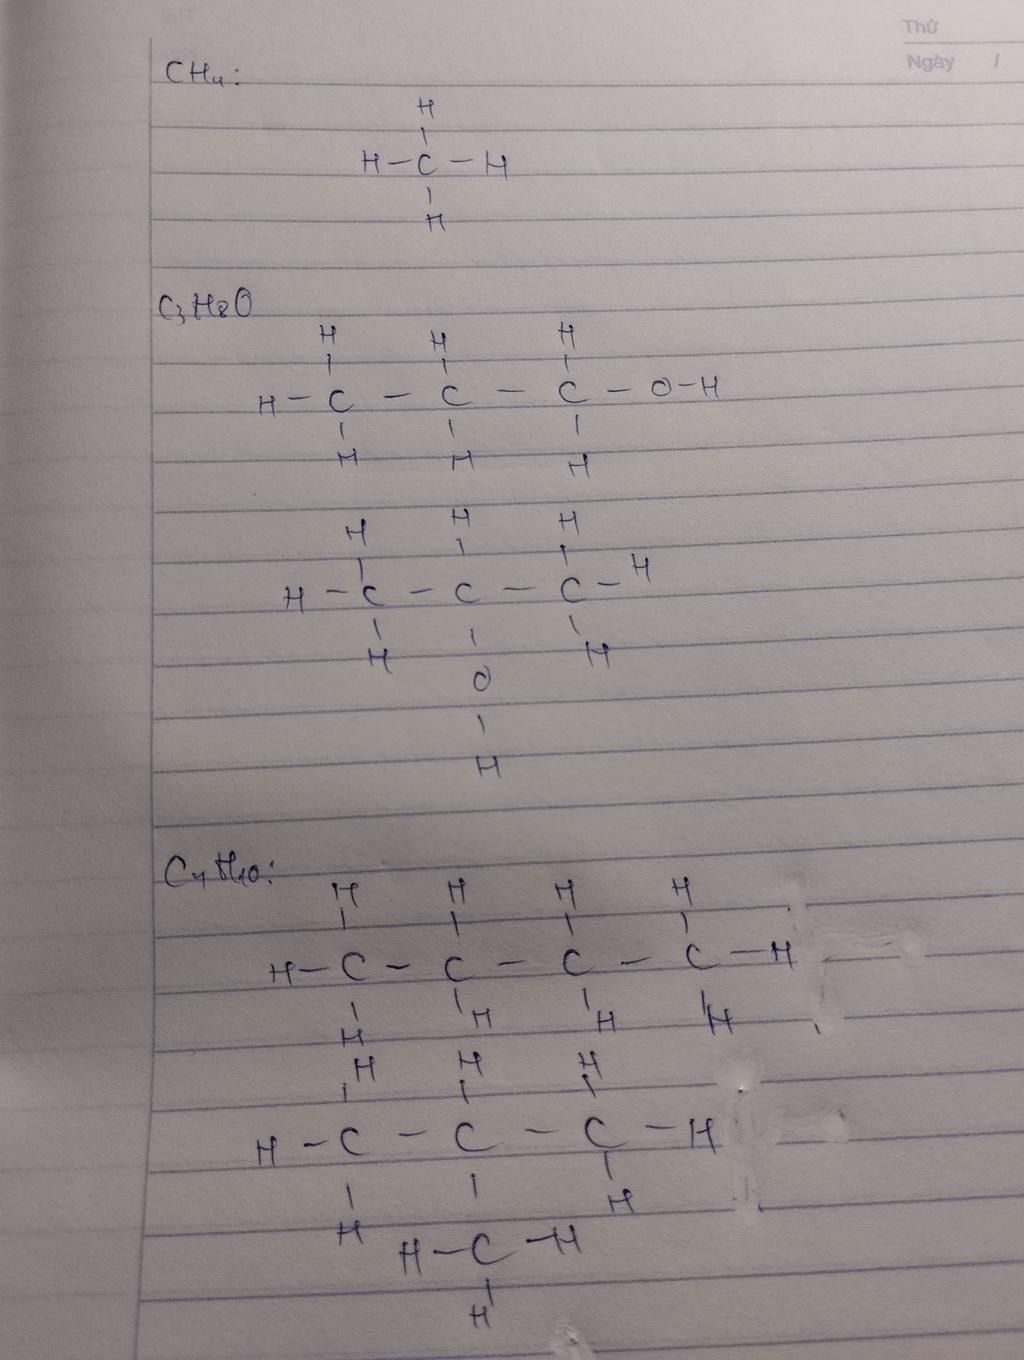 Thứ
Ngày /
CH4:
H
H-C-H
H
C3H8O
H H H
H-C-C-C-O-H
H H H
H H H
H-C-C-C-H
H H
O
H
C4H10:
H H H H
H-C-C-C-C-H
H H H H
H H H
H-C-C-C-H
H H
H-C-H
H